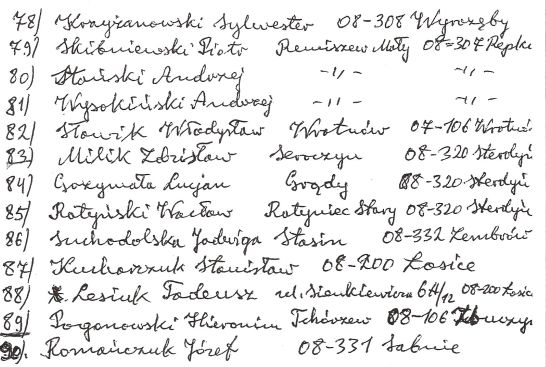 78/ Krzyżanowski Sylwester 08-308 Wyrozęby
79/ Skibniewski Piotr Remiszew Mały 08-307 Repki
80/ Stański Andrzej -"- -"-
81/ Wysokiński Andrzej -"- -"-
82/ Słowik Władysław Wrotnów 07-106 Wrotnó
83/ Milik Zdzisław Seroczyn 08-320 Sterdyń
84/ Gozymała Lucjan Grądy 08-320 Sterdyń
85/ Ratyński Wacław Ratyniec Stary 08-320 Sterdyń
86/ Suchodolska Jadwiga Stasin 08-332 Zembrów
87/ Kucharczuk Stanisław 08-200 Łosice
88/ Lesiuk Tadeusz ul. Sienkiewicza 6A/12 08-200 Łosice
89/ Pogonowski Hieronim Tchórzew 08-106
90/. Romańczuk Józef 08-331 Sabnie